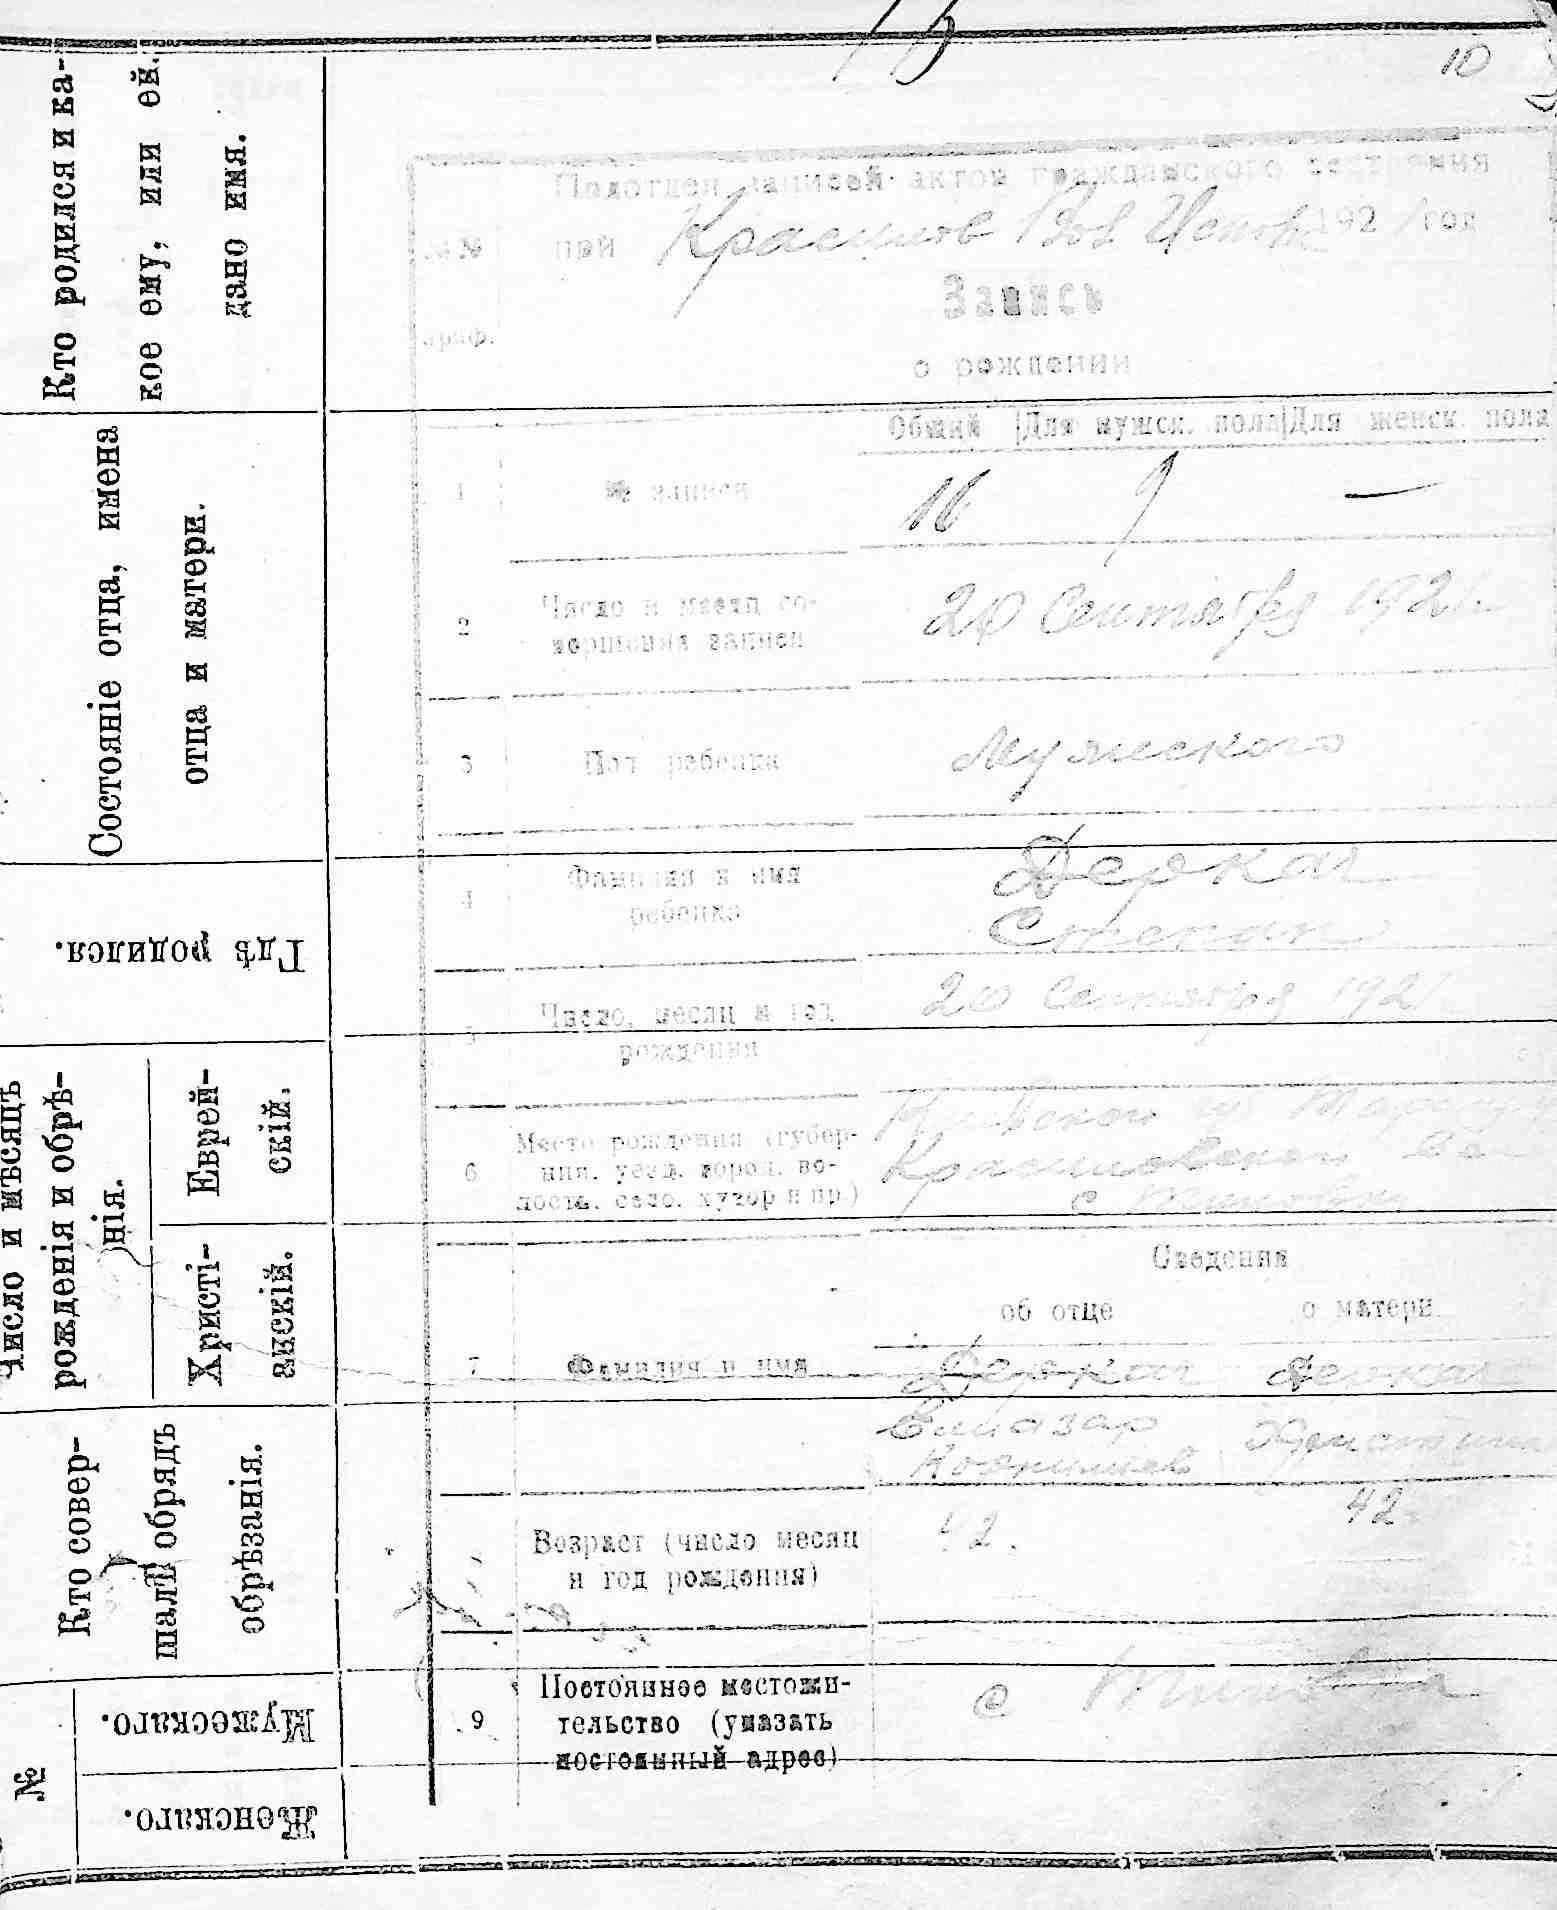 10
Кто родился и ка-
кое ему, или ей.
дано имя.
Состояніе отца, имена
отца и матери.
Гдѣ родился.
Число и мѣсяцъ
рожденія и обрѣ-
нія.
Еврей-
скій.
Христі-
анскій.
Кто совер-
шалъ обрядъ
обрѣзанія.
№
Мужескаго.
Женскаго.
Подотдел записей актов гражданского состояния
№№ при 192 1 год
Запись
граф.
о рождении
Общий Для мужск. пола Для женск. пола
1 № записи 16 9 —
2 Число и месяц со-
вершения записи
20 Сентября 1921
3 Пол ребенка Мужеского
4 Фамилия и имя
ребенка
Деркач
Степан
5 Число, месяц и год
рождения
20 Сентября 1921
6 Место рождения (губер-
ния, уезд, город, во-
лость, село, хутор и пр.)
с
Сведения
об отце о матери
7 Фамилия и имя Деркач Деркач
Елиазар
Возраст (число месяц
и год рождения)
42. 42
9 Постоянное местожи-
тельство (указать
постоянный адрес)
с